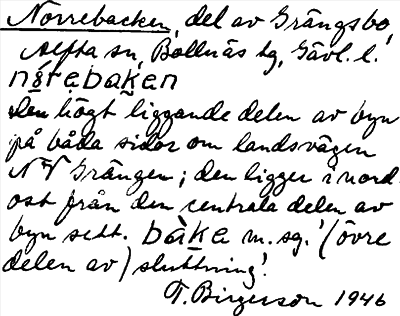 Norrebacken, del av Grängsbo,
Alfta sn, Bollnäs tg, Gävl. l.
nó̤rebaḵen
Den högt liggande delen av byn
på båda sidor om landsvägen
N V Grängen; den ligger i nord-
ost från den centrala delen av
byn sett. bàḵe m. sg. '(övre
delen av) sluttning'.
T. Birgerson 1946